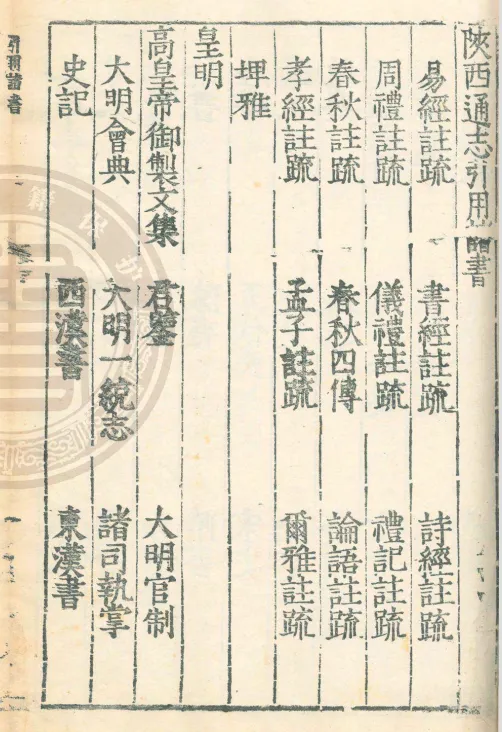 陝西通志引用諸書
易經註疏 書經註疏 詩經註疏
周禮註疏 儀禮註疏 禮記註疏
春秋註疏 春秋四傳 論語註疏
孝經註疏 孟子註疏 爾雅註疏
埤雅
皇明
高皇帝御製文集 君鑒 大明官制
大明會典 大明一統志 諸司執掌
史記 西漢書 東漢書
引用諸書